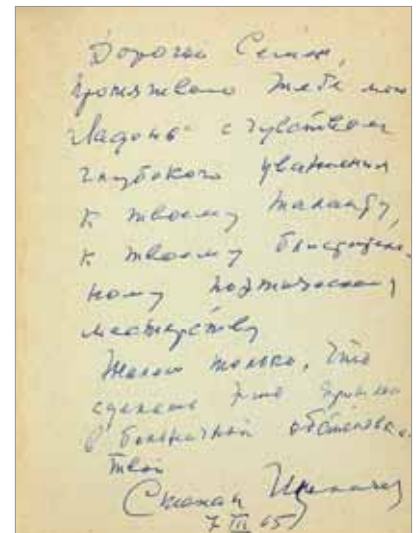 Дорогой Семен,
протягиваю тебе мою
"Ладонь" с чувством
глубокого уважения
к твоему таланту,
к твоему блистатель-
ному поэтическому
мастерству
Жалею только, что
сделать это пришлось
в больничной
Твой
Степан Щипачев
7 III 65